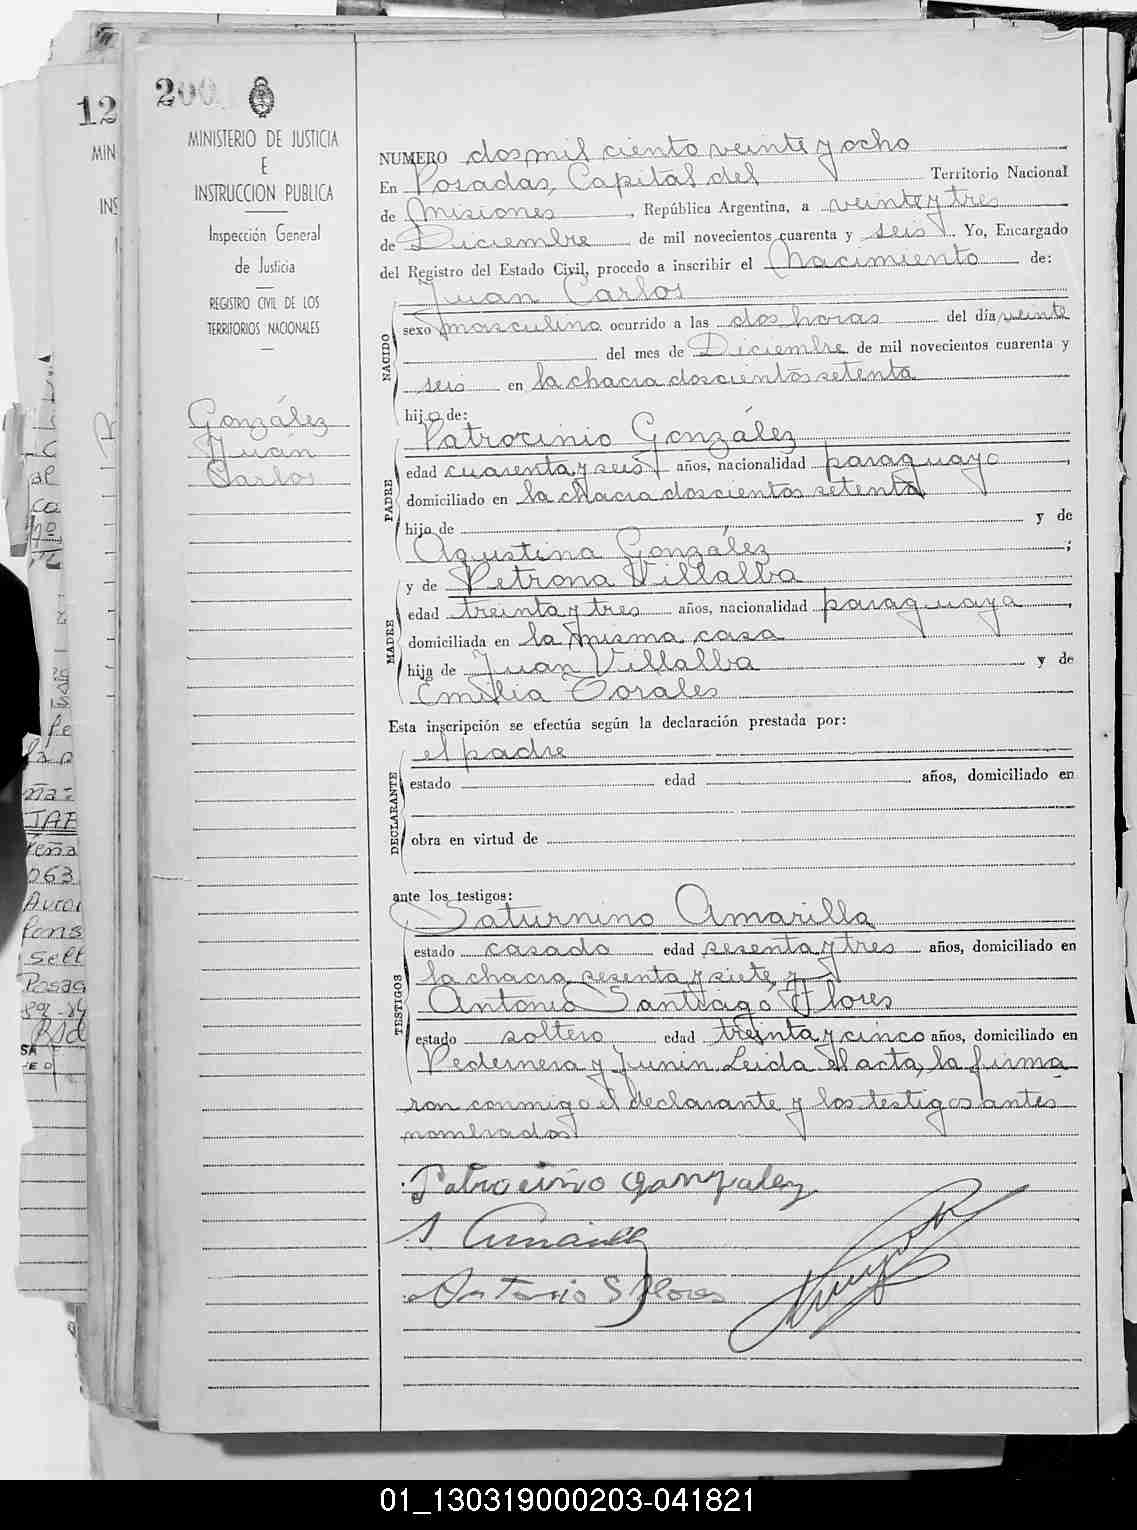 200
MINISTERIO DE JUSTICIA
E
INSTRUCCION PUBLICA
Inspección General
de Justicia
REGISTRO CIVIL DE LOS
TERRITORIOS NACIONALES
González
Juan
Carlos
NUMERO dos mil ciento veinte y ocho
En Posadas, Capital del Territorio Nacional
de Misiones, República Argentina, a veinte y tres
de Diciembre de mil novecientos cuarenta y seis. Yo, Encargado
del Registro del Estado Civil, procedo a inscribir el Nacimiento de:
NACIDO
Juan Carlos
sexo masculino ocurrido a las dos horas del día veinte
del mes de Diciembre de mil novecientos cuarenta y
seis en la chacra doscientos setenta
hijo de:
PADRE
Patrocinio González
edad cuarenta y seis años, nacionalidad paraguayo,
domiciliado en la chacra doscientos setenta
hijo de y de
Agustina González ;
MADRE
y de Petrona Villalba
edad treinta y tres años, nacionalidad paraguaya,
domiciliada en la misma casa
hija de Juan Villalba y de
Emilia Torales
Esta inscripción se efectúa según la declaración prestada por:
DECLARANTE
el padre
estado edad años, domiciliado en
obra en virtud de
ante los testigos:
TESTIGOS
Saturnino Amarilla
estado casado edad sesenta y tres años, domiciliado en
la chacra sesenta y siete, y
Antonio Santiago Flores
estado soltero edad treinta y cinco años, domiciliado en
Pedernera y Junin. Leida el acta, la firma
ron conmigo el declarante y los testigos antes
nombrados
Patrocinio Gonzalez
S Amarilla
Antonio S Flores
12
MIN
INS
01_130319000203-041821